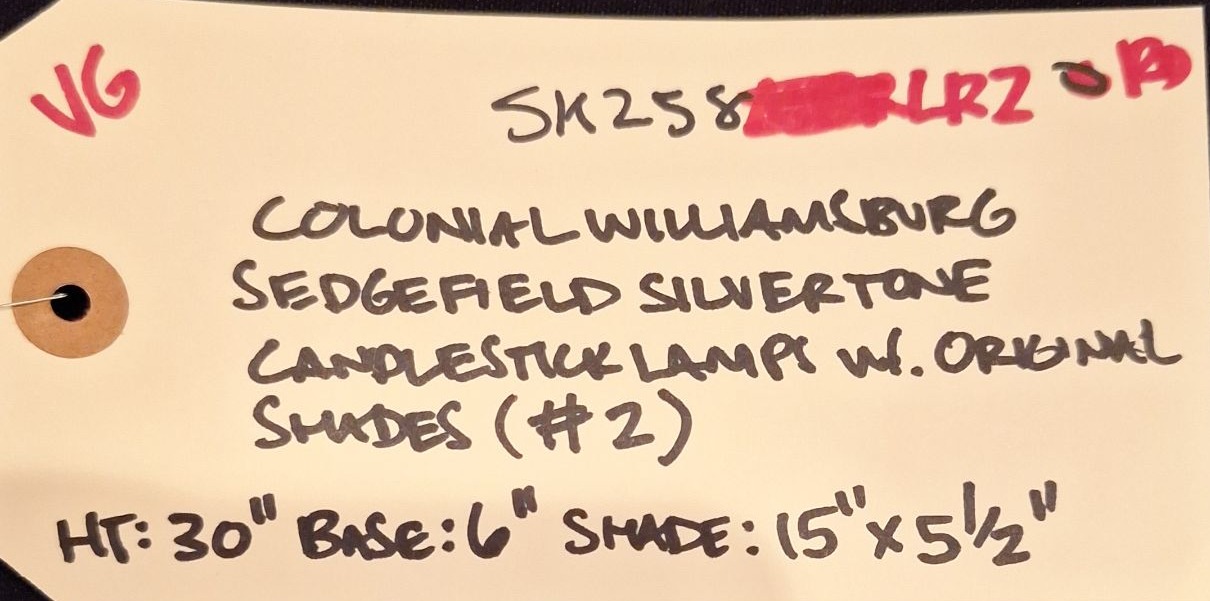 VG
SK258 LRZ
COLONIAL WILLIAMSBURG
SEDGEFIELD SILVERTONE
CANDLESTICK LAMPS W/. ORIGINAL
SHADES (#2)
HT: 30" BASE: 6" SHADE: 15" X 5 1/2"